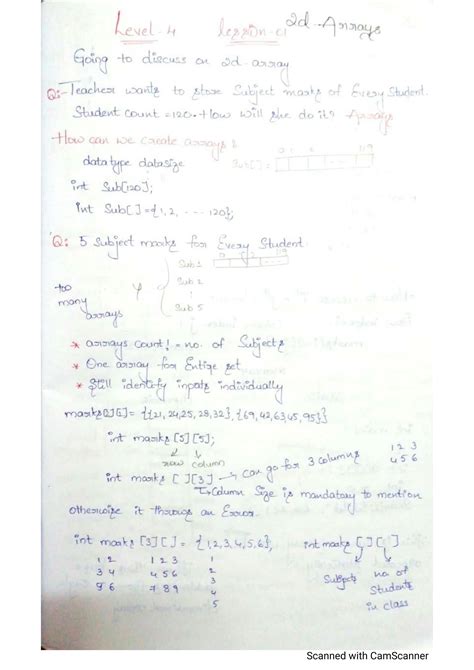 Level-4 lesson-01 2d-Arrays
Going to discuss on 2d-array
Q:- Teacher wants to store Subject marks of Every Student.
Student count = 120. How will she do it? Arrays
How can we create arrays?
datatype datasize Sub[ ]= 0 1 ... 119
int Sub[120];
int Sub[ ] = {1, 2, ... 120};
Q: 5 Subject marks for Every Student
Sub 1
too many arrays
Sub 2
Sub 5
* arrays count != no. of Subjects
* One array for Entire set
* Still identify inputs individually
marks[][]= {{21,24,25,28,32},{69,42,63,45,95}}
int marks [5][5];
row column
1 2 3
4 5 6
int marks [ ][3] → can go for 3 columns
→ Column Size is mandatory to mention
otherwise it throws an Error.
int marks [3][ ] = {1,2,3,4,5,6}; int marks [ ][ ]
1 2 1 2 3 1
3 4 4 5 6 2
7 8 9 3
4
5
Subjects no. of
Students
in class
Scanned with CamScanner